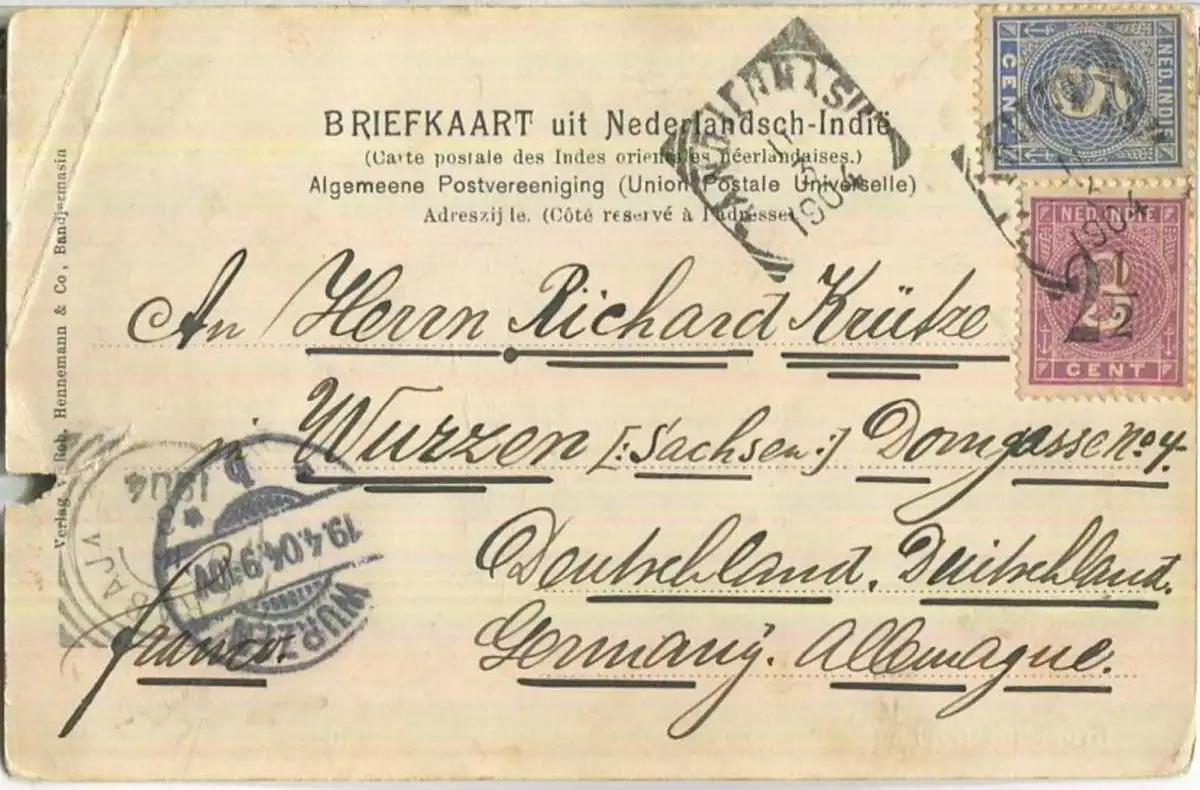 BRIEFKAART uit Nederlandsch-Indië
(Carte postale des Indes orientales néerlandaises.)
Algemeene Postvereeniging (Union Postale Universelle)
Adreszijde. (Côté reservé à l'adresse)
NED. INDIE
5
CENT
NED. INDIE
2 1/2
CENT
BANDJERMASIN
11
3
1904
1904
An Herrn Richard Krütze
in Wurzen [:Sachsen:] Domgasse No 4.
Deutschland. Deutschland.
Germany. Allemagne.
franco.
Verlag v. Rob. Hennemann & Co, Bandjermasin
1904
WURZEN
19.4.04.9-10V
b